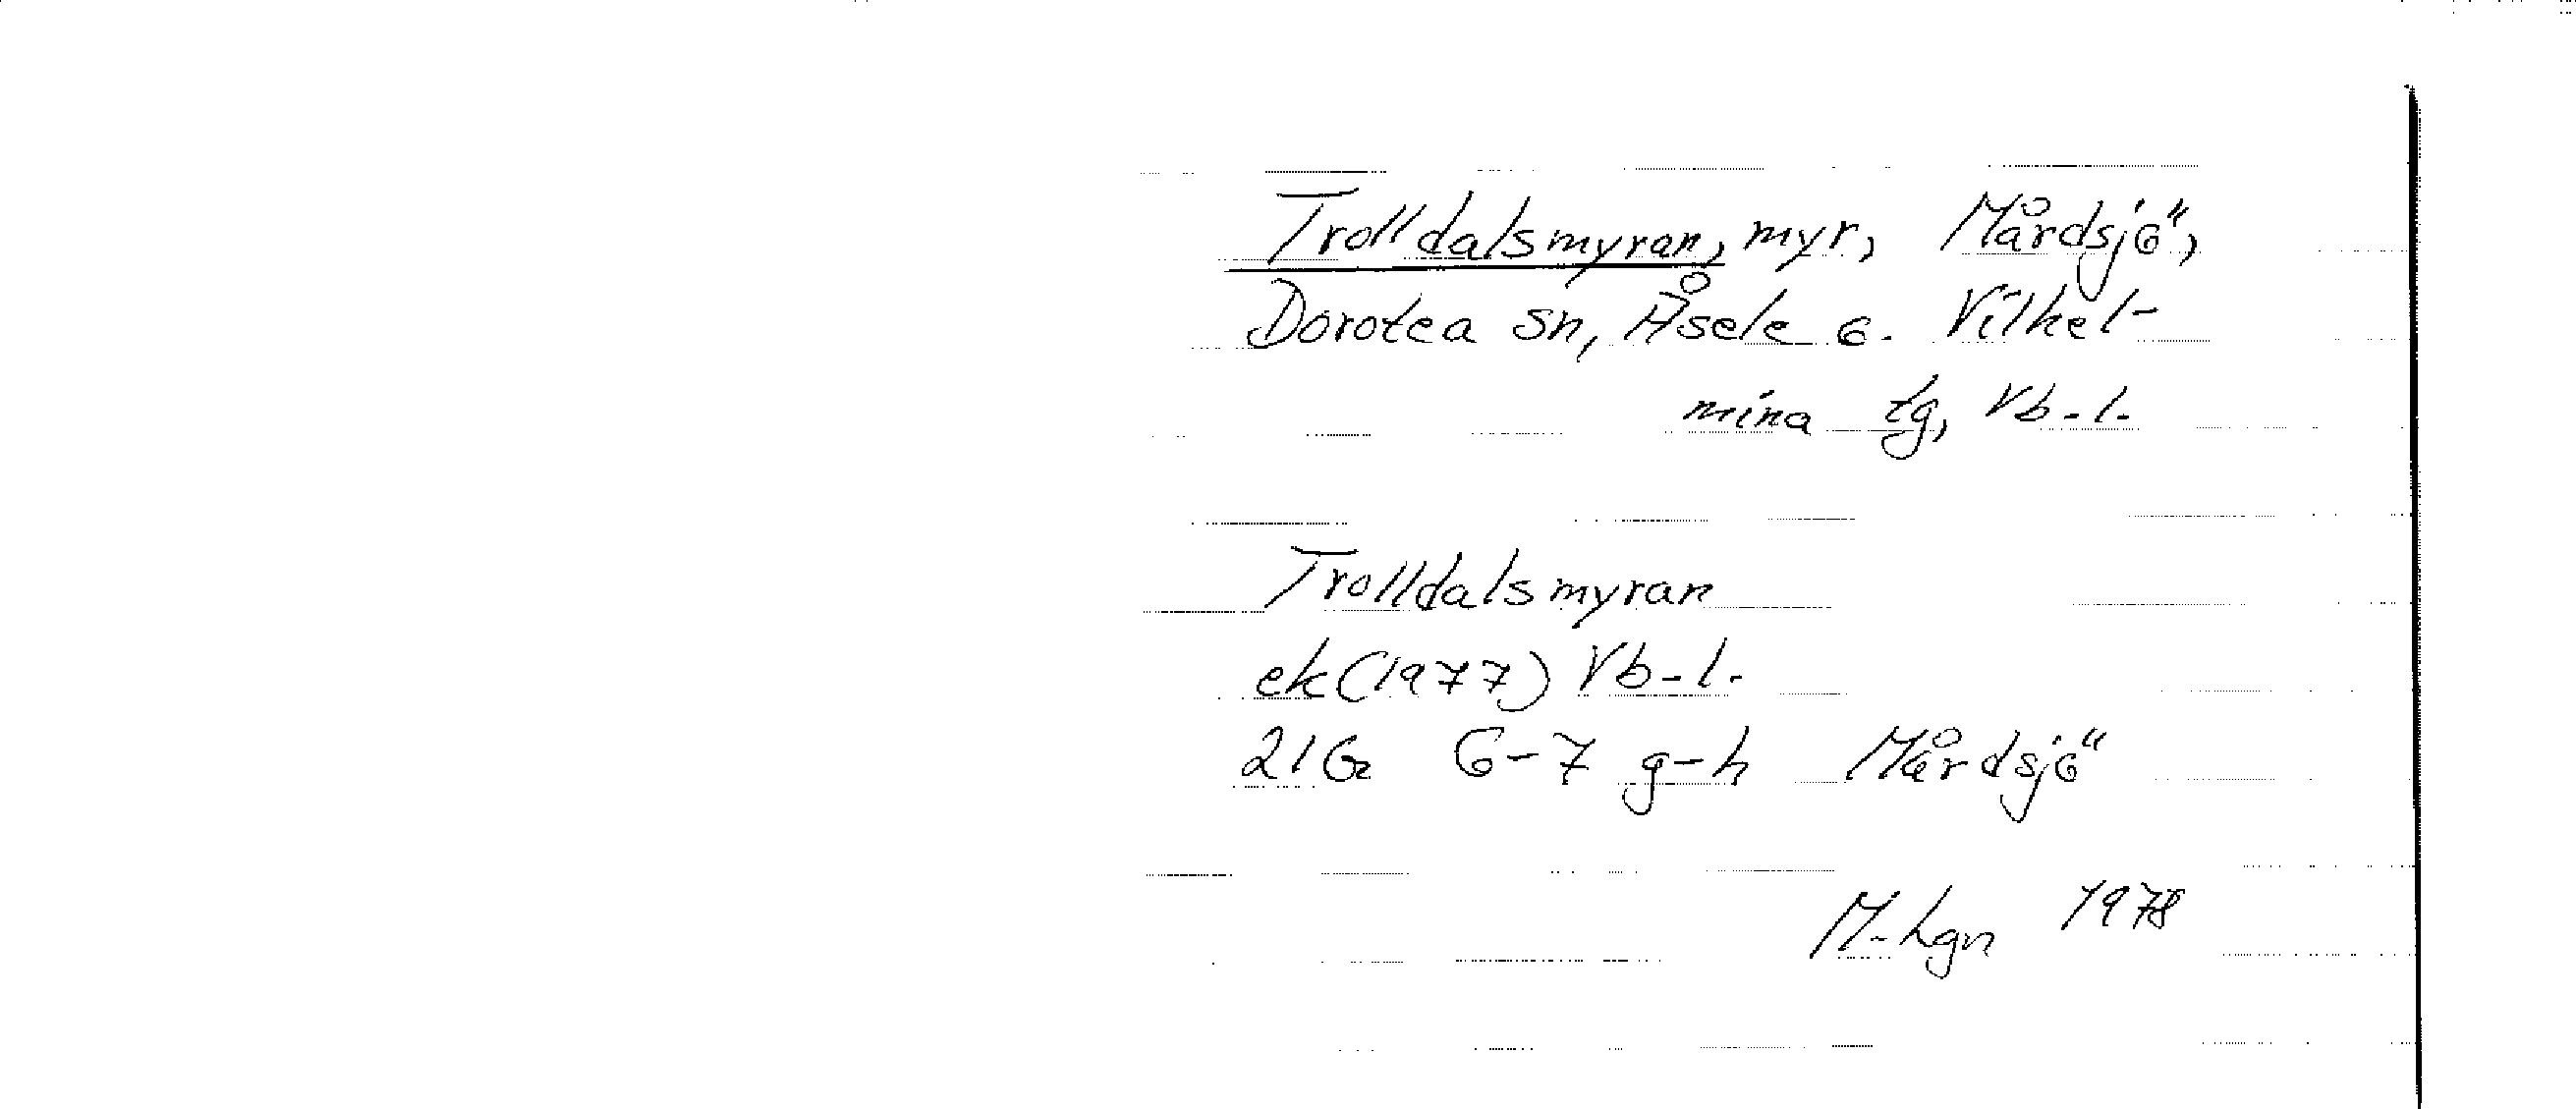 Trolldalsmyran, myr, Mårdsjö,
Dorotea sn, Åsele o. Vilhel-
mina tg, Vb-l.
Trolldalsmyran
ek (1977) Vb-l.
21G 6-7 g-h Mårdsjö
M-hgn 1978